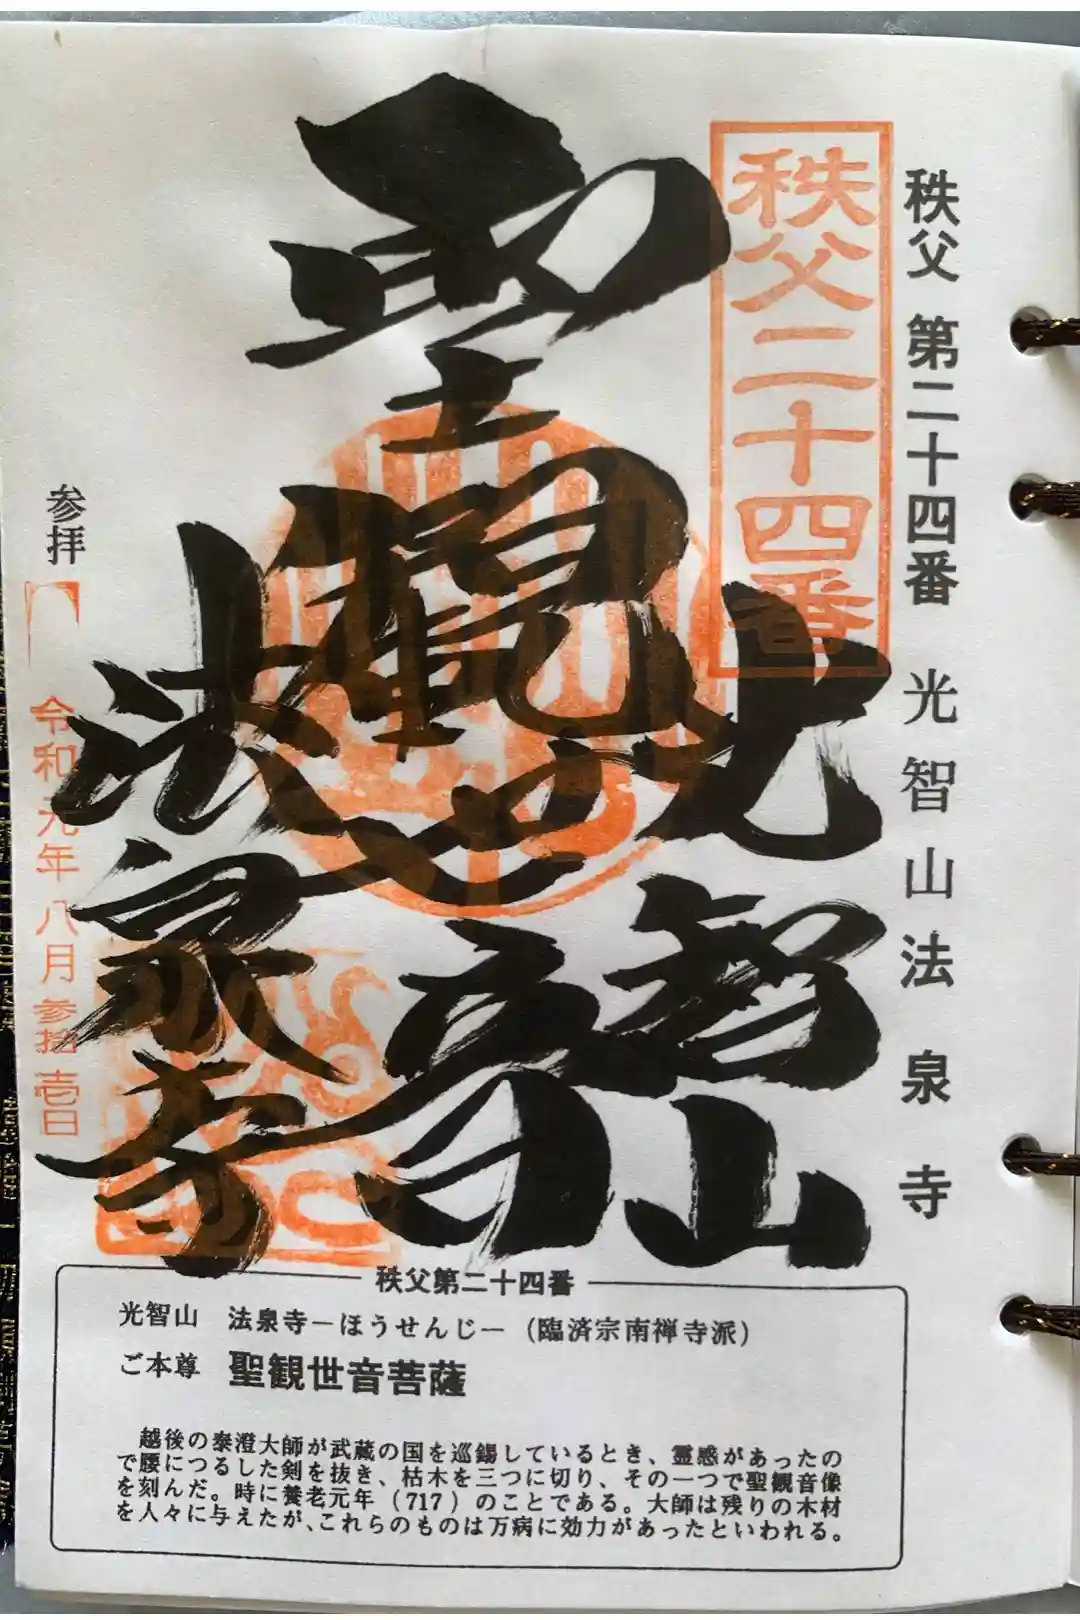 秩父 第二十四番 光智山法泉寺
秩父二十四番
聖観世音
光智山
法泉寺
参拝
令和元年八月参拾壱日
秩父第二十四番
光智山 法泉寺−ほうせんじ−(臨済宗南禅寺派)
ご本尊 聖観世音菩薩
越後の泰澄大師が武蔵の国を巡錫しているとき、霊感があったの
で腰につるした剣を抜き、枯木を三つに切り、その一つで聖観音像
を刻んだ。時に養老元年(717)のことである。大師は残りの木材
を人々に与えたが、これらのものは万病に効力があったといわれる。